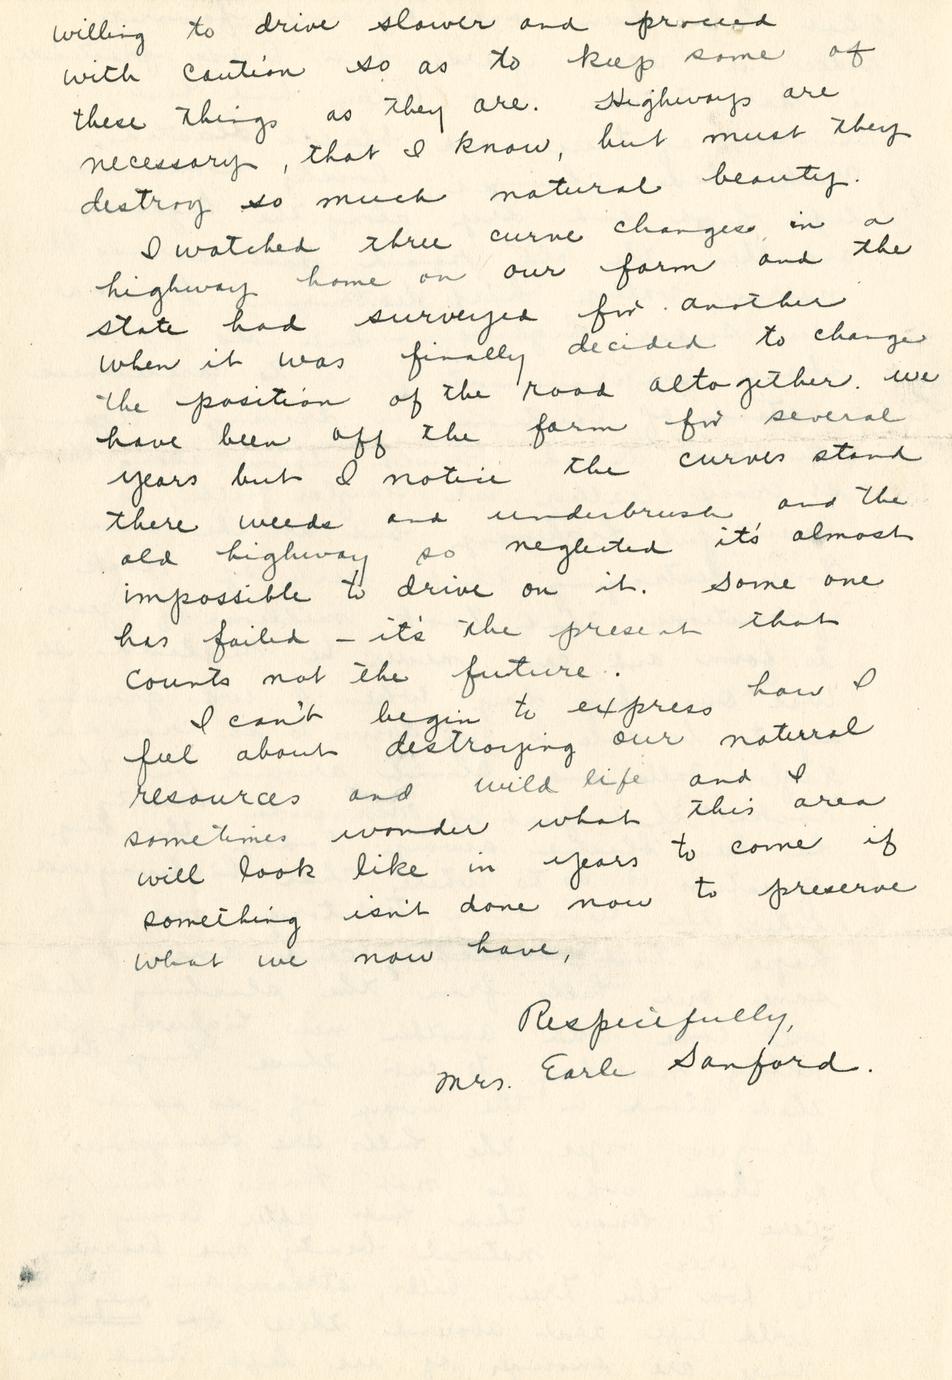 willing to drive slower and proceed
with caution so as to keep some of
these things as they are. Highways are
necessary, that I know, but must they
destroy so much natural beauty.
I watched three curve changes in a
highway home on our farm and the
state had surveyed for another
when it was finally decided to change
the position of the road altogether. We
have been off the farm for several
years but I notice the curves stand
there weeds and underbrush and the
old highway so neglected it's almost
impossible to drive on it. Some one
has failed - it's the present that
counts not the future.
I can't begin to express how I
feel about destroying our natural
resources and wild life and I
sometimes wonder what this area
will look like in years to come if
something isn't done now to preserve
what we now have,
Respectfully,
Mrs. Earle Sanford.